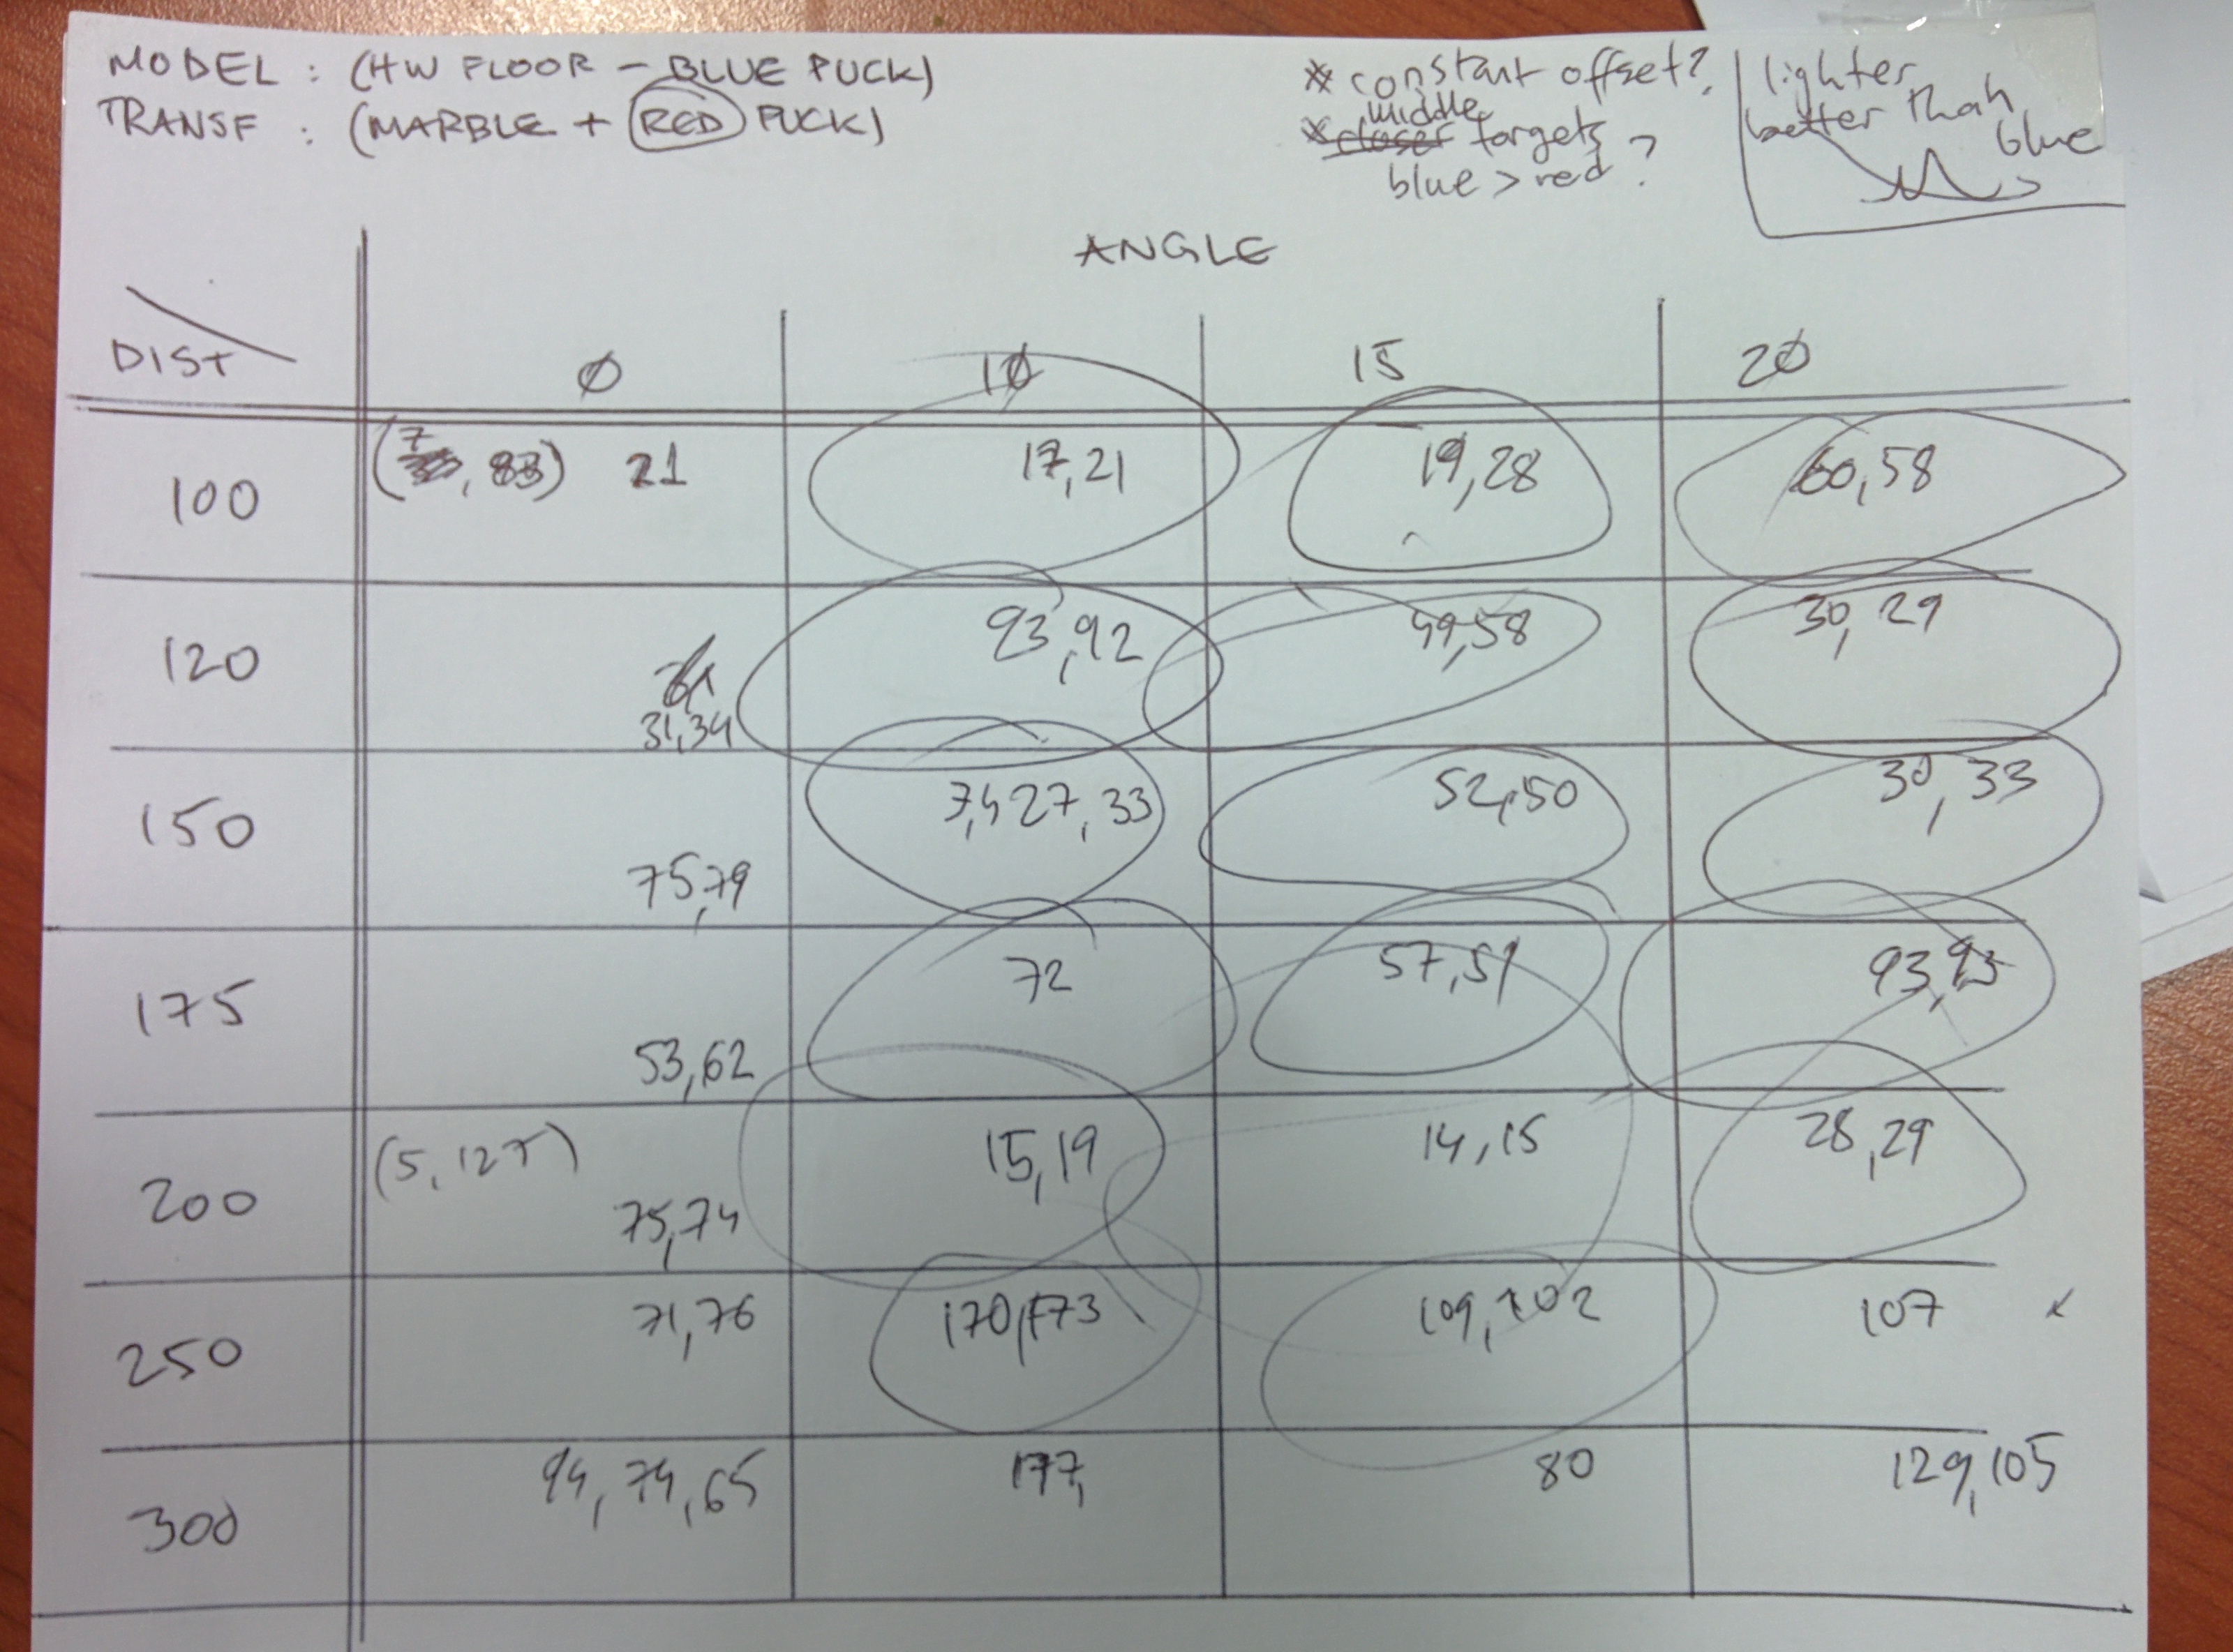 MODEL : (HW FLOOR - BLUE PUCK)
TRANSF : (MARBLE + RED PUCK)
* constant offset?
middle
* closer targets
blue > red ?
lighter
better than
blue
ANGLE
DIST 0 10 15 20
100 (7, 83) 21 17,21 19,28 60,58
120 31,34 93,92 49,58 30,29
150 75,79 7,4 27,33 52,50 30,33
175 53,62 72 57,51 93,93
200 (5,127) 75,74 15,19 14,15 28,29
250 71,76 170,173 109,102 107
300 94,74,65 177, 80 129,105